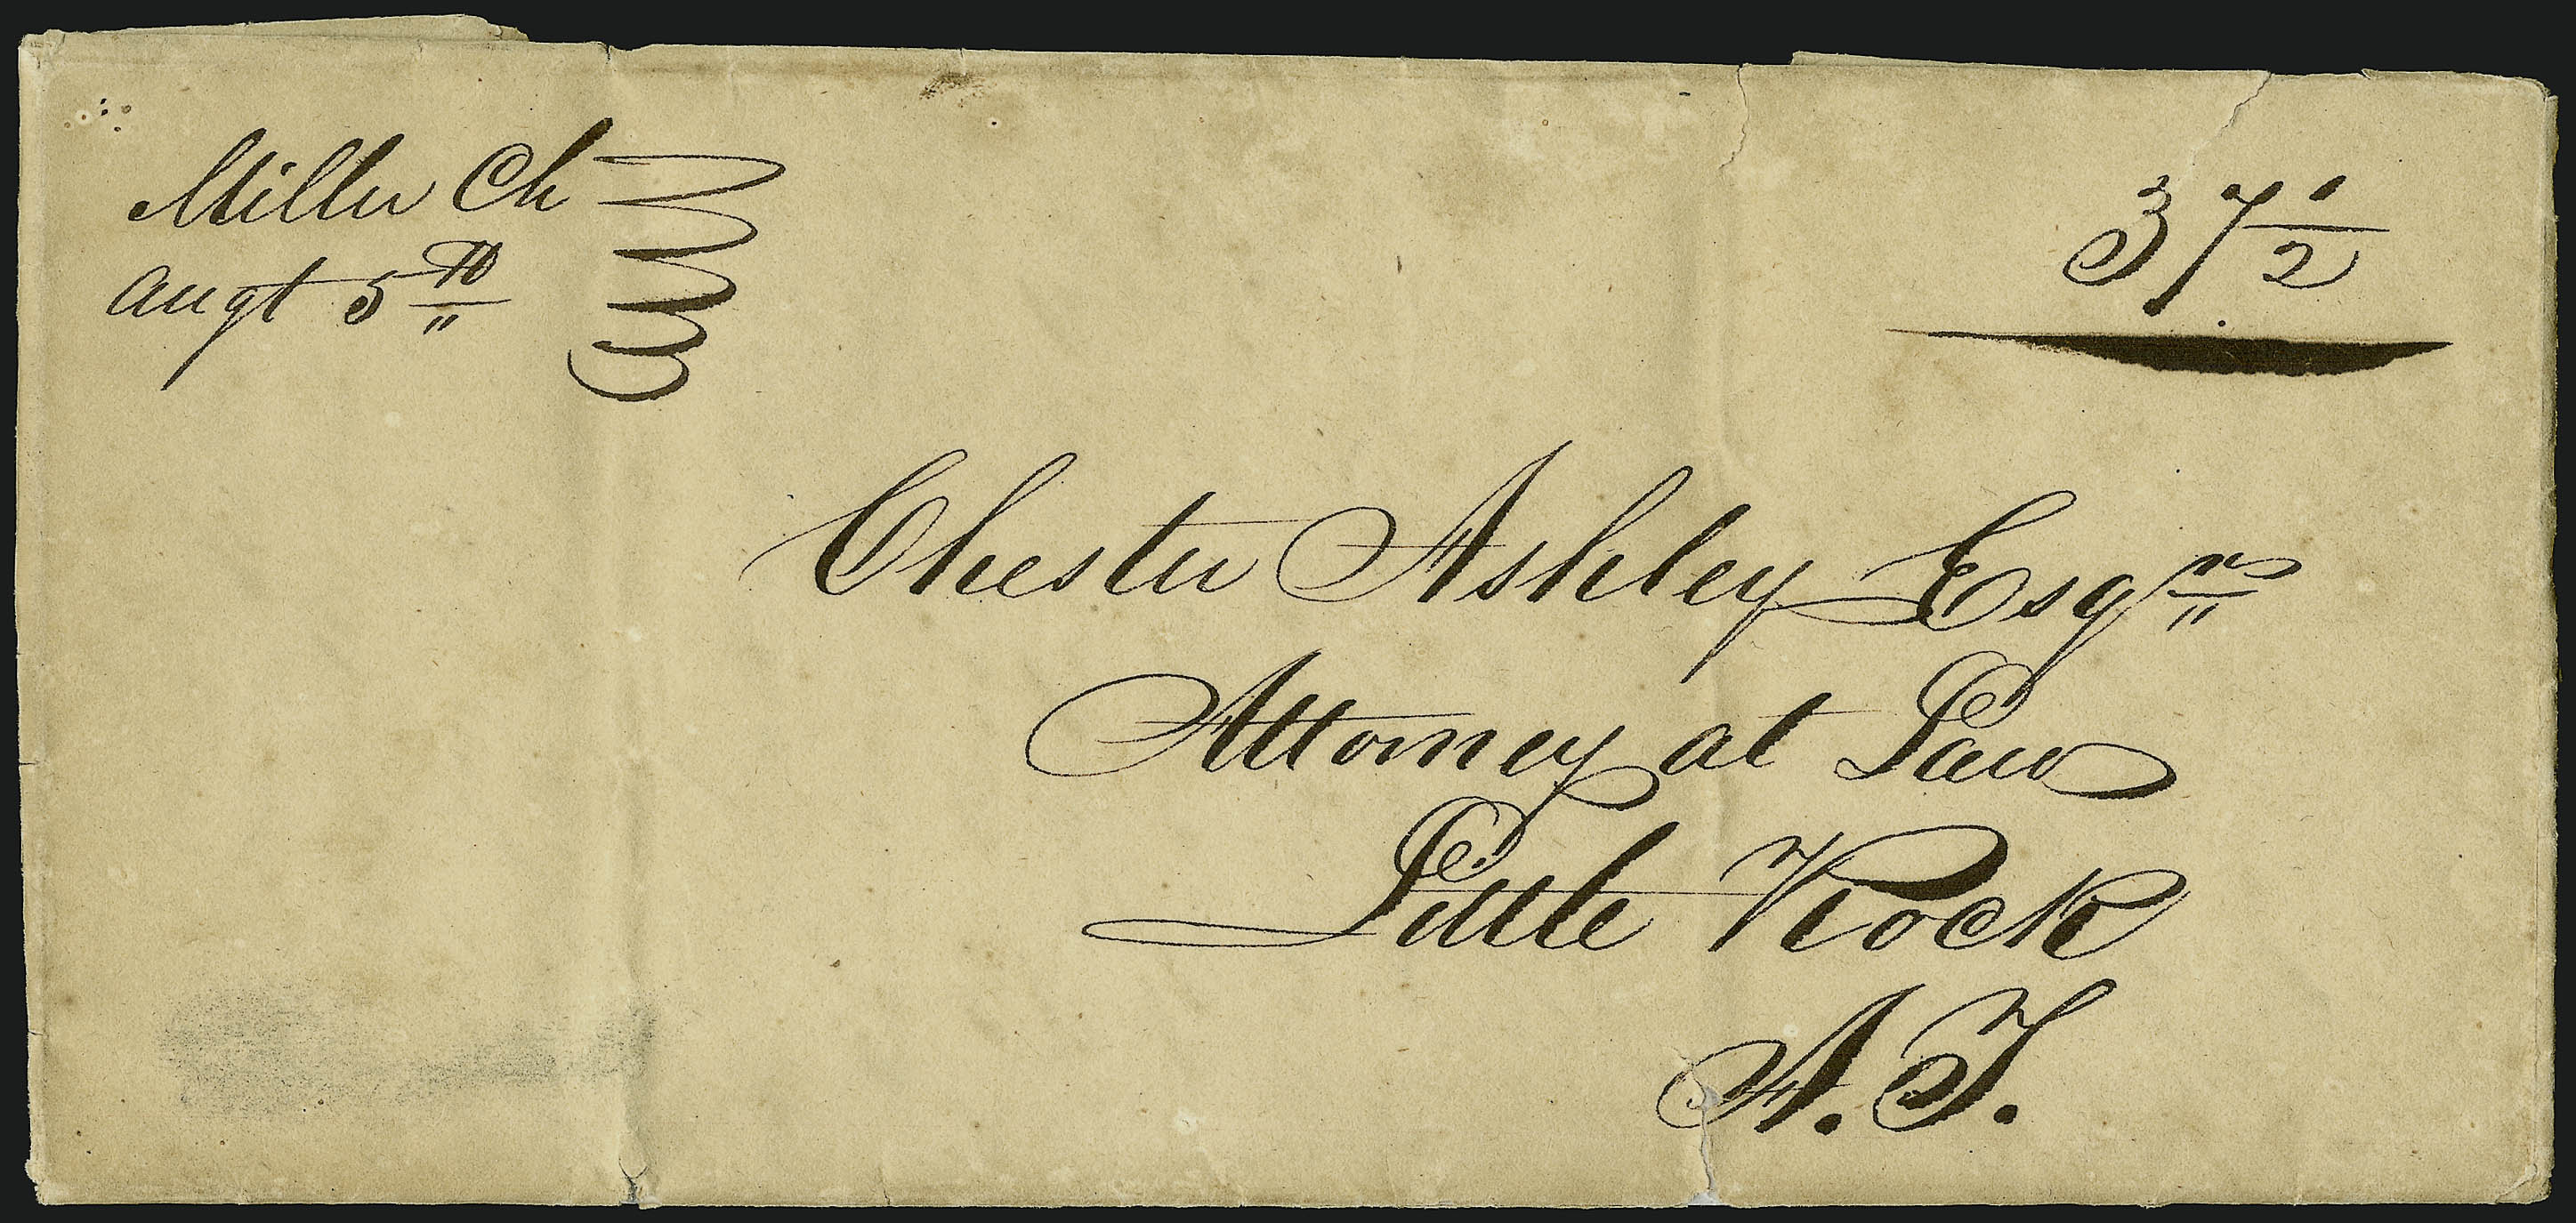 Miller Ch
Augt 5th
37 1/2
Chester Ashley Esqr
Attorney at Law
Little Rock
A. T.